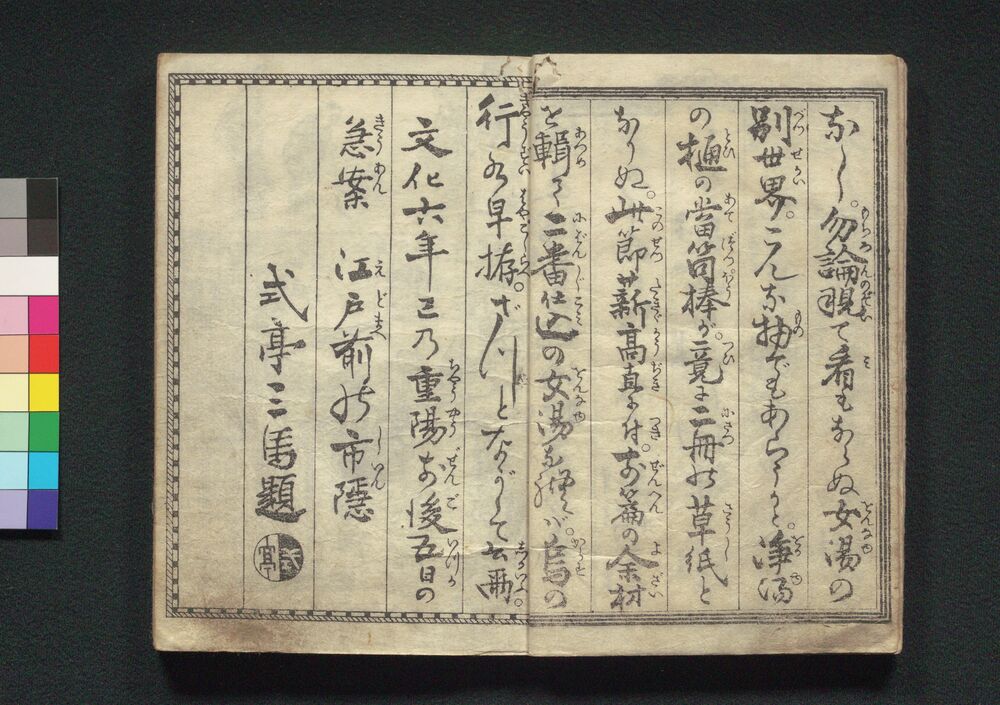 なし。勿論覗て看もならぬ女湯の
別世界。こんな物でもあらうかと。浄湯
の樋の當筒棒が。竟に二冊の草紙と
なりぬ。此節薪高直に付。前篇の余材
を輯て二番仕込の女湯を焚ば。烏の
行水早拵。ざつとながして云爾。
文化六年己乃重陽前後五日の
急案 江戸前の市隠
式亭三馬題
式亭